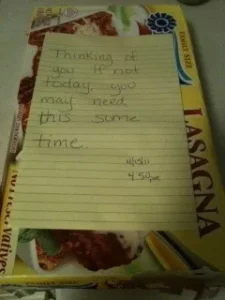 FAMILY SIZE
Thinking of
you if not
today, you
may need
this some
time.
4:50pm
LASAGNA